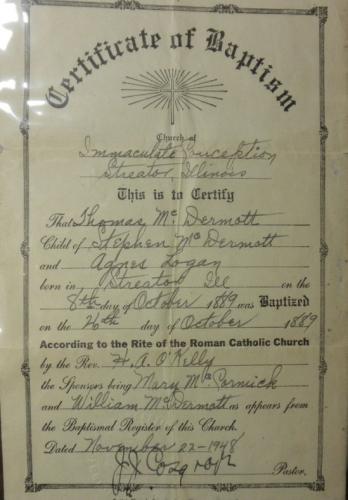 Certificate of Baptism
Church of
Immaculate Conception
Streator, Illinois
This is to Certify
That Thomas McDermott
Child of Stephen McDermott
and Agnes Logan
born in Streator Ill on the
8th day of October 1889 was Baptized
on the 26th day of October 1889
According to the Rite of the Roman Catholic Church
by the Rev. H. A. O'Kelly
the Sponsors being Mary McCormick
and William McDermott as appears from
the Baptismal Register of this Church.
Dated November 22-1948
Pastor.